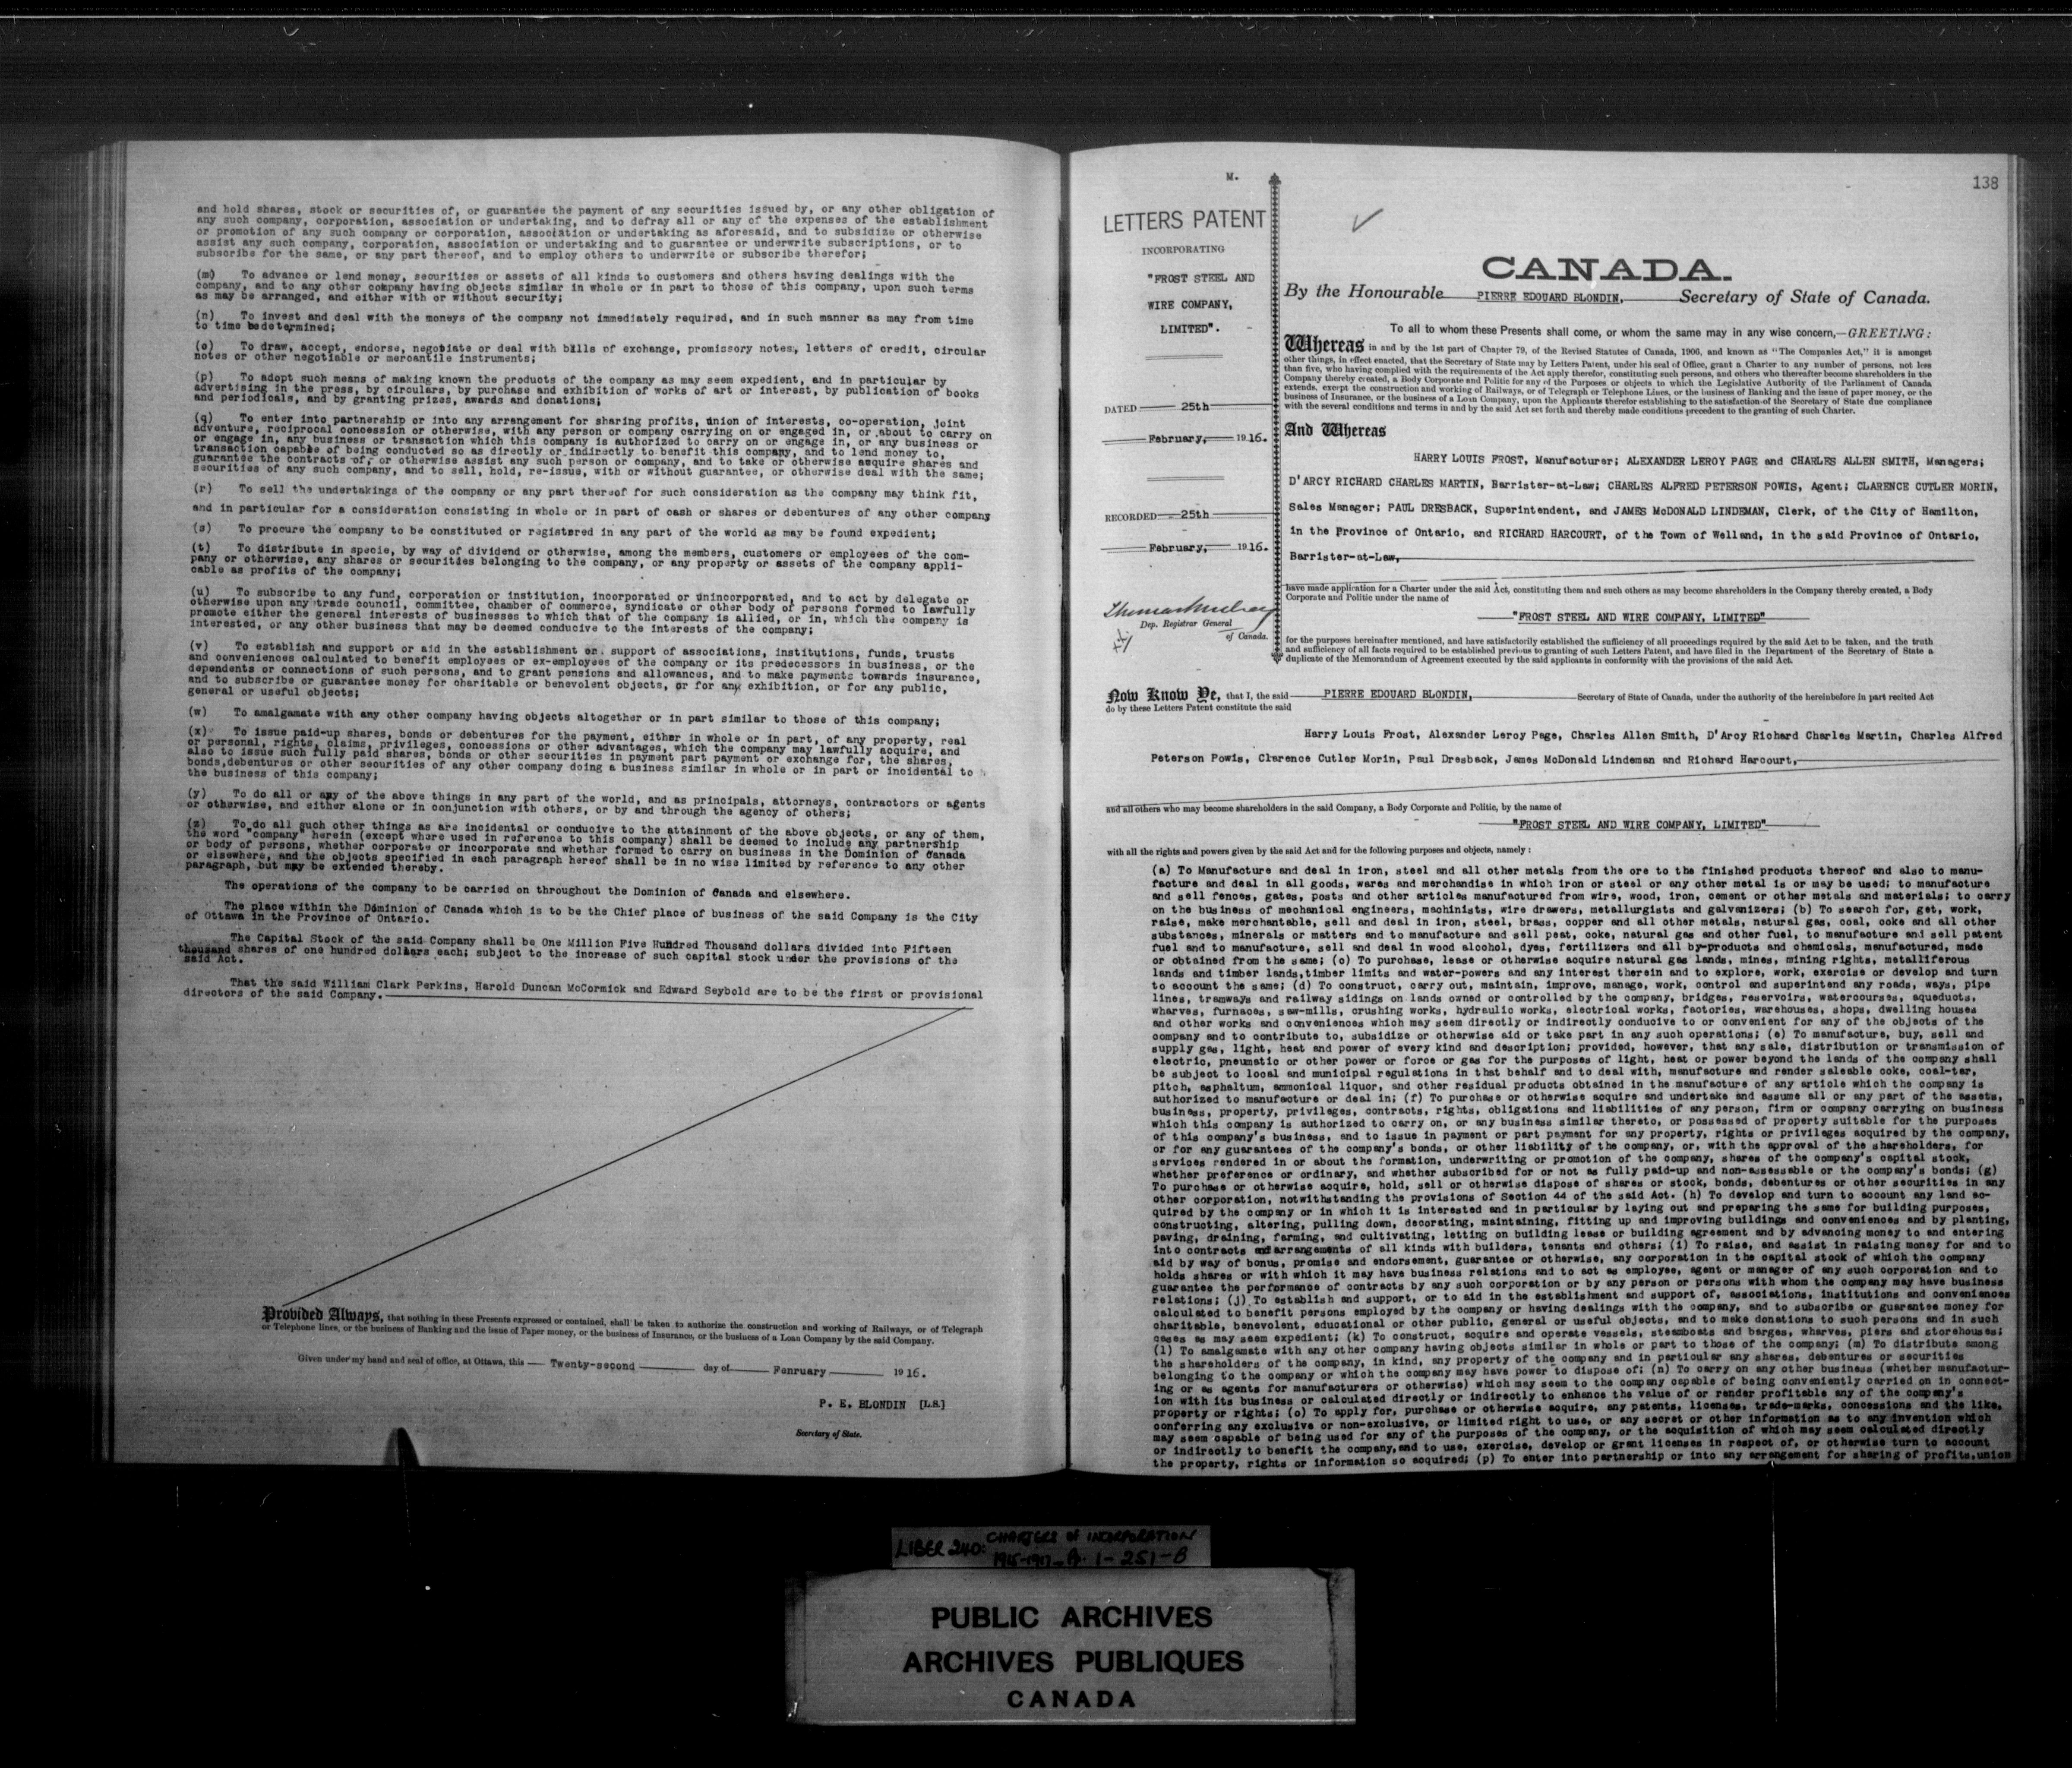 and hold shares, stock or securities of, or guarantee the payment of any securities issued by, or any other obligation of
any such company, corporation, association or undertaking, and to defray all or any of the expenses of the establishment
or promotion of any such company or corporation, association or undertaking as aforesaid, and to subsidize or otherwise
assist any such company, corporation, association or undertaking and to guarantee or underwrite subscriptions, or to
subscribe for the same, or any part thereof, and to employ others to underwrite or subscribe therefor;
(m) To advance or lend money, securities or assets of all kinds to customers and others having dealings with the
company, and to any other company having objects similar in whole or in part to those of this company, upon such terms
as may be arranged, and either with or without security;
(n) To invest and deal with the moneys of the company not immediately required, and in such manner as may from time
to time be determined;
(o) To draw, accept, endorse, negotiate or deal with bills of exchange, promissory notes, letters of credit, circular
notes or other negotiable or mercantile instruments;
(p) To adopt such means of making known the products of the company as may seem expedient, and in particular by
advertising in the press, by circulars, by purchase and exhibition of works of art or interest, by publication of books
and periodicals, and by granting prizes, awards and donations;
(q) To enter into partnership or into any arrangement for sharing profits, union of interests, co-operation, joint
adventure, reciprocal concession or otherwise, with any person or company carrying on or engaged in, or about to carry on
or engage in, any business or transaction which this company is authorized to carry on or engage in, or any business or
transaction capable of being conducted so as directly or indirectly to benefit this company, and to lend money to,
guarantee the contracts of, or otherwise assist any such person or company, and to take or otherwise acquire shares and
securities of any such company, and to sell, hold, re-issue, with or without guarantee, or otherwise deal with the same;
(r) To sell the undertakings of the company or any part thereof for such consideration as the company may think fit,
and in particular for a consideration consisting in whole or in part of cash or shares or debentures of any other company
(s) To procure the company to be constituted or registered in any part of the world as may be found expedient;
(t) To distribute in specie, by way of dividend or otherwise, among the members, customers or employees of the com-
pany or otherwise, any shares or securities belonging to the company, or any property or assets of the company appli-
cable as profits of the company;
(u) To subscribe to any fund, corporation or institution, incorporated or unincorporated, and to act by delegate or
otherwise upon any trade council, committee, chamber of commerce, syndicate or other body of persons formed to lawfully
promote either the general interests of businesses to which that of the company is allied, or in, which the company is
interested, or any other business that may be deemed conducive to the interests of the company;
(v) To establish and support or aid in the establishment or support of associations, institutions, funds, trusts
and conveniences calculated to benefit employees or ex-employees of the company or its predecessors in business, or the
dependents or connections of such persons, and to grant pensions and allowances, and to make payments towards insurance,
and to subscribe or guarantee money for charitable or benevolent objects, or for any exhibition, or for any public,
general or useful objects;
(w) To amalgamate with any other company having objects altogether or in part similar to those of this company;
(x) To issue paid-up shares, bonds or debentures for the payment, either in whole or in part, of any property, real
or personal, rights, claims, privileges, concessions or other advantages, which the company may lawfully acquire, and
also to issue such fully paid shares, bonds or other securities in payment part payment or exchange for, the shares,
bonds,debentures or other securities of any other company doing a business similar in whole or in part or incidental to
the business of this company;
(y) To do all or any of the above things in any part of the world, and as principals, attorneys, contractors or agents
or otherwise, and either alone or in conjunction with others, or by and through the agency of others;
(z) To do all such other things as are incidental or conducive to the attainment of the above objects, or any of them,
the word "company" herein (except where used in reference to this company) shall be deemed to include any partnership
or body of persons, whether corporate or incorporate and whether formed to carry on business in the Dominion of Canada
or elsewhere, and the objects specified in each paragraph hereof shall be in no wise limited by reference to any other
paragraph, but may be extended thereby.
The operations of the company to be carried on throughout the Dominion of Canada and elsewhere.
The place within the Dominion of Canada which is to be the Chief place of business of the said Company is the City
of Ottawa in the Province of Ontario.
The Capital Stock of the said Company shall be One Million Five Hundred Thousand dollars divided into Fifteen
thousand shares of one hundred dollars each; subject to the increase of such capital stock under the provisions of the
said Act.
That the said William Clark Perkins, Harold Duncan McCormick and Edward Seybold are to be the first or provisional
directors of the said Company.
Provided Always, that nothing in these Presents expressed or contained, shall be taken to authorize the construction and working of Railways, or of Telegraph
or Telephone lines, or the business of Banking and the issue of Paper money, or the business of Insurance, or the business of a Loan Company by the said Company.
Given under my hand and seal of office, at Ottawa, this Twenty-second day of Fenruary 1916.
P. E. BLONDIN [L.S.]
Secretary of State.
M.
138
LETTERS PATENT
INCORPORATING
"FROST STEEL AND
WIRE COMPANY,
LIMITED".
DATED 25th
February, 1916.
RECORDED 25th
February, 1916.
Thomas Mulvey
Dep. Registrar General
of Canada.
CANADA.
By the Honourable PIERRE EDOUARD BLONDIN, Secretary of State of Canada.
To all to whom these Presents shall come, or whom the same may in any wise concern,—GREETING:
Whereas in and by the 1st part of Chapter 79, of the Revised Statutes of Canada, 1906, and known as "The Companies Act," it is amongst
other things, in effect enacted, that the Secretary of State may by Letters Patent, under his seal of Office, grant a Charter to any number of persons, not less
than five, who having complied with the requirements of the Act apply therefor, constituting such persons, and others who thereafter become shareholders in the
Company thereby created, a Body Corporate and Politic for any of the Purposes or objects to which the Legislative Authority of the Parliament of Canada
extends, except the construction and working of Railways, or of Telegraph or Telephone Lines, or the business of Banking and the issue of paper money, or the
business of Insurance, or the business of a Loan Company, upon the Applicants therefor establishing to the satisfaction of the Secretary of State due compliance
with the several conditions and terms in and by the said Act set forth and thereby made conditions precedent to the granting of such Charter.
And Whereas
HARRY LOUIS FROST, Manufacturer; ALEXANDER LEROY PAGE and CHARLES ALLEN SMITH, Managers;
D'ARCY RICHARD CHARLES MARTIN, Barrister-at-Law; CHARLES ALFRED PETERSON POWIS, Agent; CLARENCE CUTLER MORIN,
Sales Manager; PAUL DRESBACK, Superintendent, and JAMES McDONALD LINDEMAN, Clerk, of the City of Hamilton,
in the Province of Ontario, and RICHARD HARCOURT, of the Town of Welland, in the said Province of Ontario,
Barrister-at-Law,
have made application for a Charter under the said Act, constituting them and such others as may become shareholders in the Company thereby created, a Body
Corporate and Politic under the name of
"FROST STEEL AND WIRE COMPANY, LIMITED"
for the purposes hereinafter mentioned, and have satisfactorily established the sufficiency of all proceedings required by the said Act to be taken, and the truth
and sufficiency of all facts required to be established previous to granting of such Letters Patent, and have filed in the Department of the Secretary of State a
duplicate of the Memorandum of Agreement executed by the said applicants in conformity with the provisions of the said Act.
Now Know Ye, that I, the said PIERRE EDOUARD BLONDIN, Secretary of State of Canada, under the authority of the hereinbefore in part recited Act
do by these Letters Patent constitute the said
Harry Louis Frost, Alexander Leroy Page, Charles Allen Smith, D'Arcy Richard Charles Martin, Charles Alfred
Peterson Powis, Clarence Cutler Morin, Paul Dresback, James McDonald Lindeman and Richard Harcourt,
and all others who may become shareholders in the said Company, a Body Corporate and Politic, by the name of
"FROST STEEL AND WIRE COMPANY, LIMITED"
with all the rights and powers given by the said Act and for the following purposes and objects, namely:
(a) To Manufacture and deal in iron, steel and all other metals from the ore to the finished products thereof and also to manu-
facture and deal in all goods, wares and merchandise in which iron or steel or any other metal is or may be used; to manufacture
and sell fences, gates, posts and other articles manufactured from wire, wood, iron, cement or other metals and materials; to carry
on the business of mechanical engineers, machinists, wire drawers, metallurgists and galvanizers; (b) To search for, get, work,
raise, make merchantable, sell and deal in iron, steel, brass, copper and all other metals, natural gas, coal, coke and all other
substances, minerals or matters and to manufacture and sell peat, coke, natural gas and other fuel, to manufacture and sell patent
fuel and to manufacture, sell and deal in wood alcohol, dyes, fertilizers and all by-products and chemicals, manufactured, made
or obtained from the same; (c) To purchase, lease or otherwise acquire natural gas lands, mines, mining rights, metalliferous
lands and timber lands,timber limits and water-powers and any interest therein and to explore, work, exercise or develop and turn
to account the same; (d) To construct, carry out, maintain, improve, manage, work, control and superintend any roads, ways, pipe
lines, tramways and railway sidings on lands owned or controlled by the company, bridges, reservoirs, watercourses, aqueducts,
wharves, furnaces, saw-mills, crushing works, hydraulic works, electrical works, factories, warehouses, shops, dwelling houses
and other works and conveniences which may seem directly or indirectly conducive to or convenient for any of the objects of the
company and to contribute to, subsidize or otherwise aid or take part in any such operations; (e) To manufacture, buy, sell and
supply gas, light, heat and power of every kind and description; provided, however, that any sale, distribution or transmission of
electric, pneumatic or other power or force or gas for the purposes of light, heat or power beyond the lands of the company shall
be subject to local and municipal regulations in that behalf and to deal with, manufacture and render saleable coke, coal-tar,
pitch, asphaltum, ammonical liquor, and other residual products obtained in the manufacture of any article which the company is
authorized to manufacture or deal in; (f) To purchase or otherwise acquire and undertake and assume all or any part of the assets,
business, property, privileges, contracts, rights, obligations and liabilities of any person, firm or company carrying on business
which this company is authorized to carry on, or any business similar thereto, or possessed of property suitable for the purposes
of this company's business, and to issue in payment or part payment for any property, rights or privileges acquired by the company,
or for any guarantees of the company's bonds, or other liability of the company, or, with the approval of the shareholders, for
services rendered in or about the formation, underwriting or promotion of the company, shares of the company's capital stock,
whether preference or ordinary, and whether subscribed for or not as fully paid-up and non-assessable or the company's bonds; (g)
To purchase or otherwise acquire, hold, sell or otherwise dispose of shares or stock, bonds, debentures or other securities in any
other corporation, notwithstanding the provisions of Section 44 of the said Act. (h) To develop and turn to account any land ac-
quired by the company or in which it is interested and in particular by laying out and preparing the same for building purposes,
constructing, altering, pulling down, decorating, maintaining, fitting up and improving buildings and conveniences and by planting,
paving, draining, farming, and cultivating, letting on building lease or building agreement and by advancing money to and entering
into contracts and arrangements of all kinds with builders, tenants and others; (i) To raise, and assist in raising money for and to
aid by way of bonus, promise and endorsement, guarantee or otherwise, any corporation in the capital stock of which the company
holds shares or with which it may have business relations and to act as employee, agent or manager of any such corporation and to
guarantee the performance of contracts by any such corporation or by any person or persons with whom the company may have business
relations; (j) To establish and support, or to aid in the establishment and support of, associations, institutions and conveniences
calculated to benefit persons employed by the company or having dealings with the company, and to subscribe or guarantee money for
charitable, benevolent, educational or other public, general or useful objects, and to make donations to such persons and in such
cases as may seem expedient; (k) To construct, acquire and operate vessels, steamboats and barges, wharves, piers and storehouses;
(l) To amalgamate with any other company having objects similar in whole or part to those of the company; (m) To distribute among
the shareholders of the company, in kind, any property of the company and in particular any shares, debentures or securities
belonging to the company or which the company may have power to dispose of; (n) To carry on any other business (whether manufactur-
ing or as agents for manufacturers or otherwise) which may seem to the company capable of being conveniently carried on in connect-
ion with its business or calculated directly or indirectly to enhance the value of or render profitable any of the company's
property or rights; (o) To apply for, purchase or otherwise acquire, any patents, licenses, trade-marks, concessions and the like,
conferring any exclusive or non-exclusive, or limited right to use, or any secret or other information as to any invention which
may seem capable of being used for any of the purposes of the company, or the acquisition of which may seem calculated directly
or indirectly to benefit the company,and to use, exercise, develop or grant licenses in respect of, or otherwise turn to account
the property, rights or information so acquired; (p) To enter into partnership or into any arrangement for sharing of profits,union
LIBER 240: CHARTERS of INCORPORATION
1915-1917 - A. 1-251-B
PUBLIC ARCHIVES
ARCHIVES PUBLIQUES
CANADA